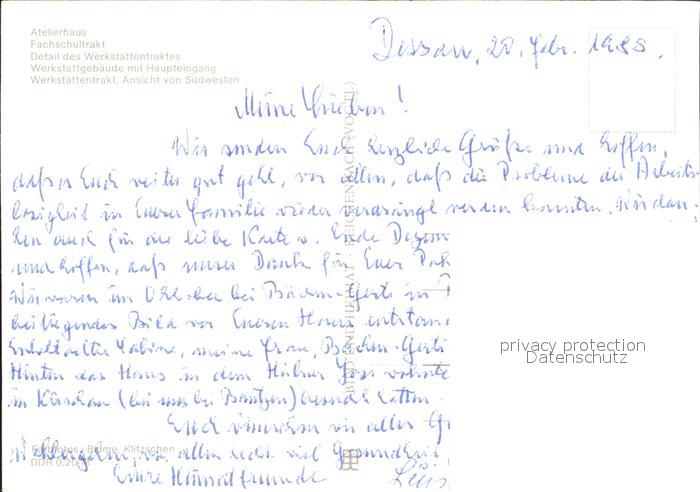 Atelierhaus
Fachschultrakt
Detail des Werkstättentraktes
Werkstattgebäude mit Haupteingang
Werkstättentrakt, Ansicht von Südwesten
Dessau, 20. Febr. 1988.
Meine Lieben!
Wir senden Euch herzliche Grüße und hoffen,
daß es Euch weiter gut geht, vor allem, daß die Probleme der Arbeits-
losigkeit in Eurer Familie wieder verdrängt werden konnten. Wir dan-
ken auch für die liebe Karte v. Ende Dezem
und hoffen, daß unser Dank für Euer Pak
Wir waren im Oktober bei in
beiliegendes Bild vor Eurem Haus entstand
meine Frau,
Hinten das Haus in dem wohnte
in (bei uns bei Bautzen) besucht hatten.
Euch wünschen wir alles G
vor allem recht viel Gesundheit
Eure Heimatfreunde
BILD UND HEIMAT REICHENBACH (VOGTL)
Farbfotos: Blume, Klitzschen
DDR 0,20 M
privacy protection
Datenschutz